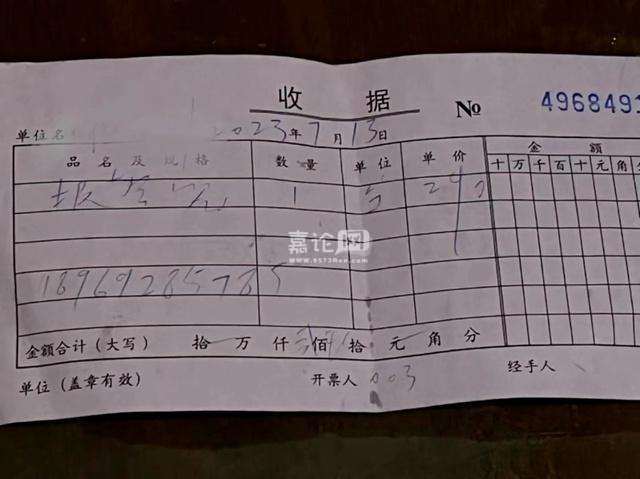 收 据
№ 4968491
单位名 2023年7月13日
品名及规格 数量 单位 单价 金额
十万千百十元角分
1
嘉论网
18969285785
金额合计(大写) 拾 万 仟 佰 拾 元 角 分
单位(盖章有效) 开票人 003 经手人